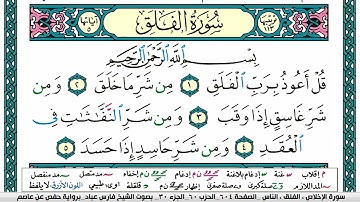 سُورَةُ الفَلَقِ
بِسْمِ اللَّهِ الرَّحْمَٰنِ الرَّحِيمِ
قُلْ أَعُوذُ بِرَبِّ الْفَلَقِ ١ مِن شَرِّ مَا خَلَقَ ٢ وَمِن
شَرِّ غَاسِقٍ إِذَا وَقَبَ ٣ وَمِن شَرِّ النَّفَّاثَاتِ فِي
الْعُقَدِ ٤ وَمِن شَرِّ حَاسِدٍ إِذَا حَسَدَ ٥
سورة الإخلاص ، الفلق ، الناس . الصفحة ٦٠٤ الحزب ٦٠ الجزء ٣٠ . بصوت الشيخ فارس عباد . برواية حفص عن عاصم